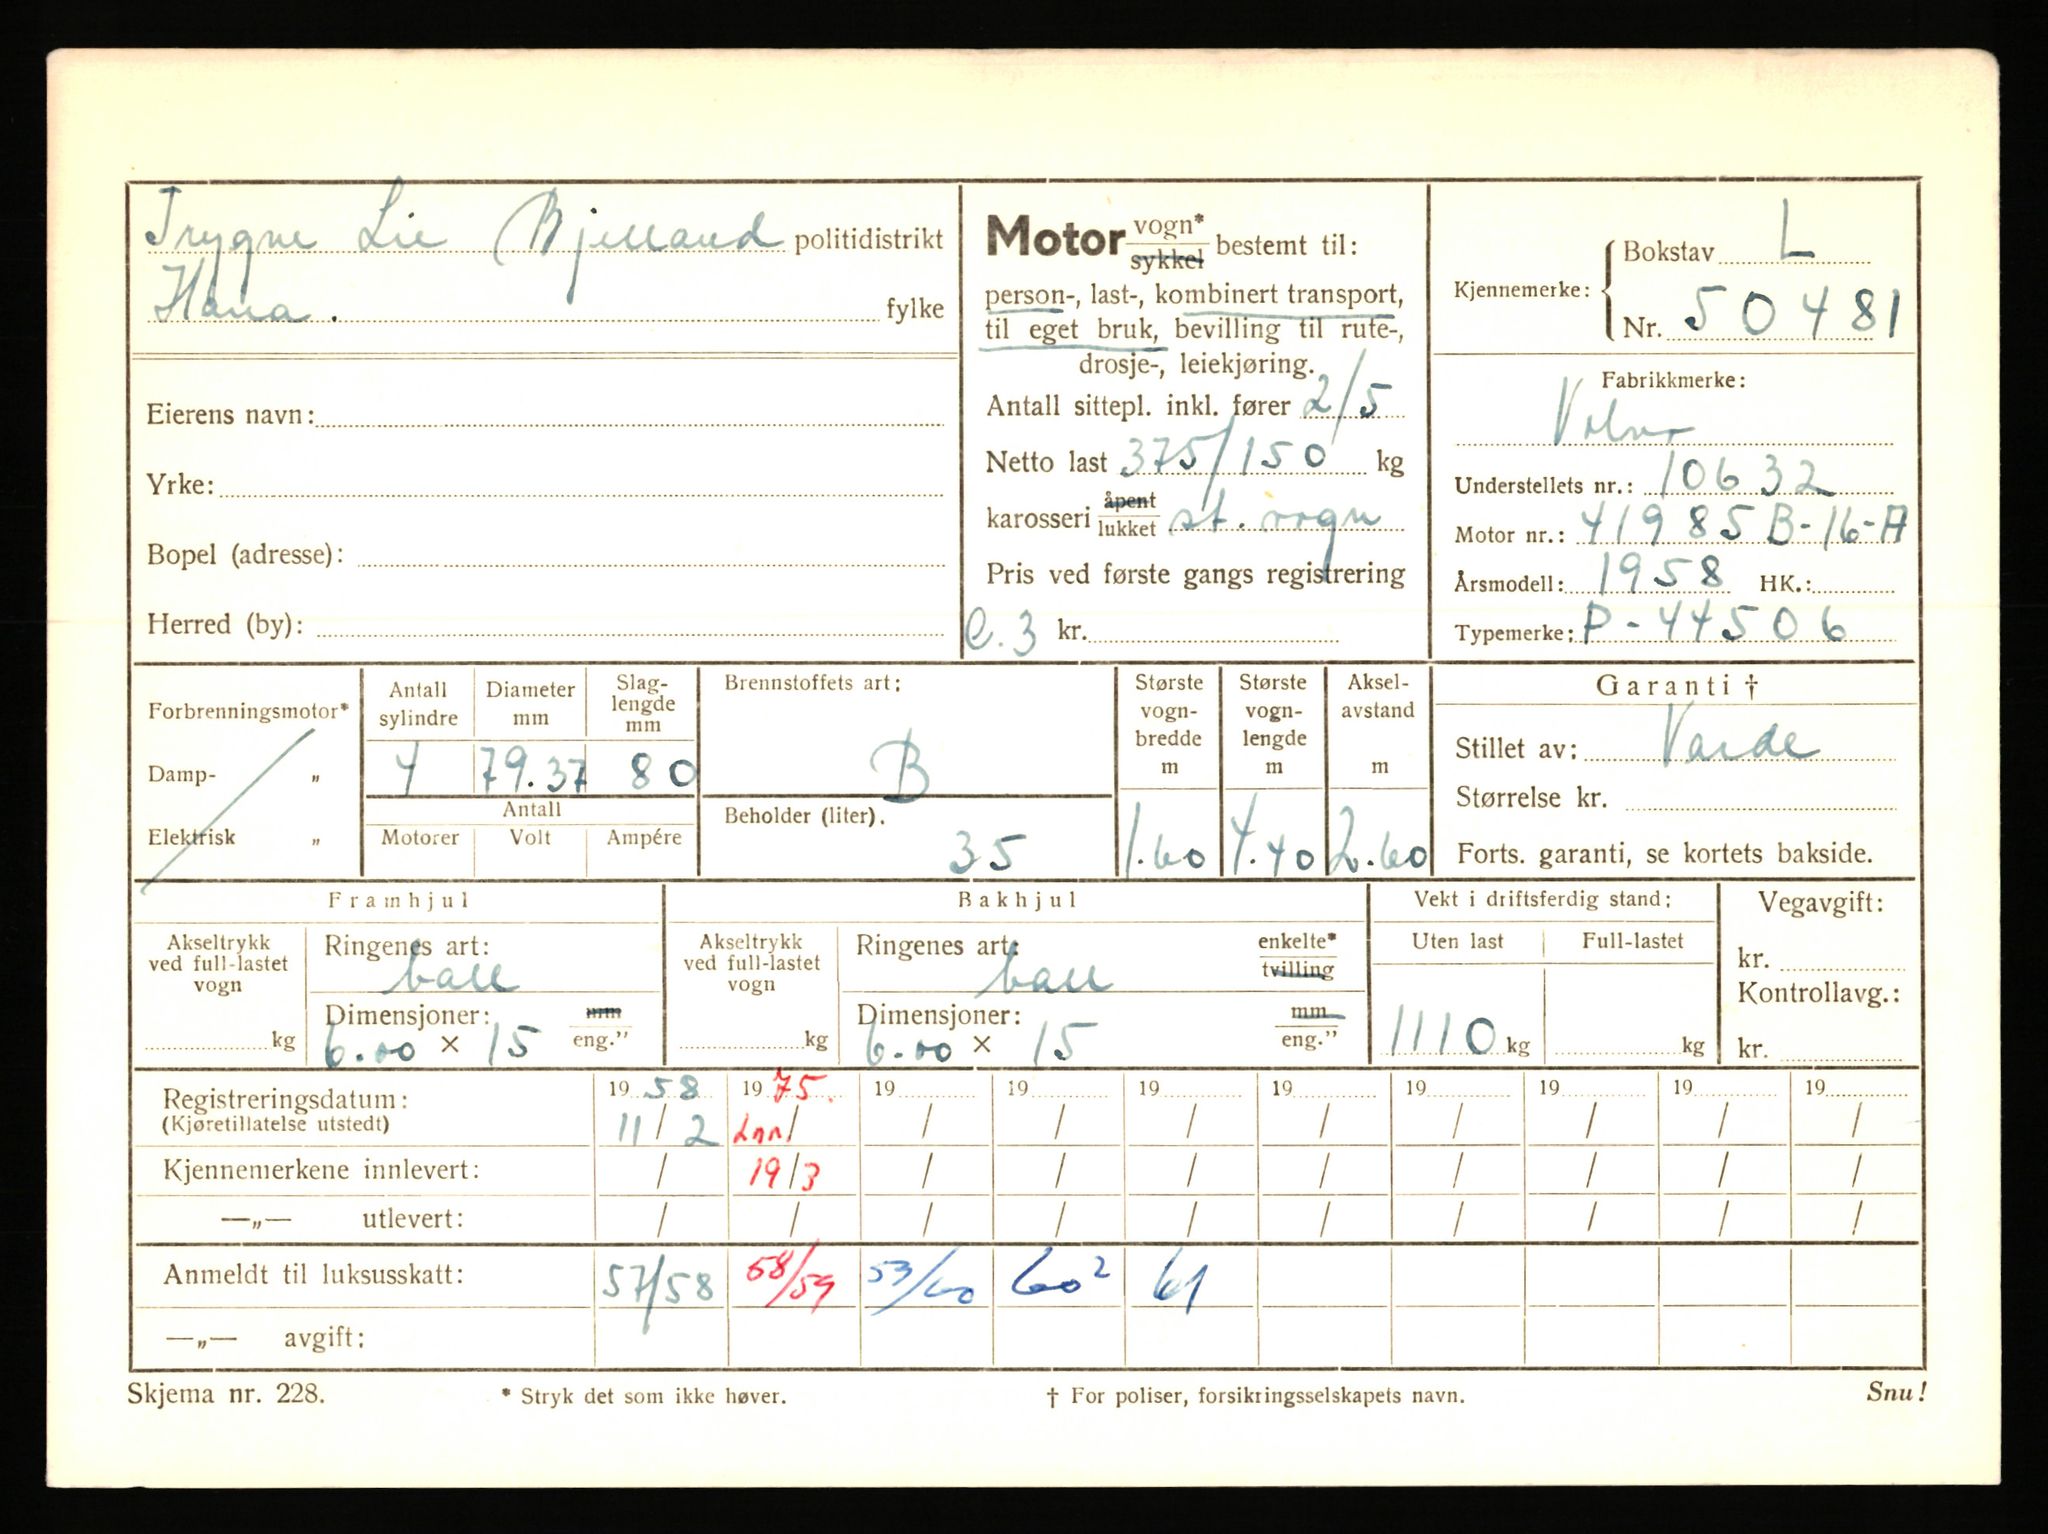 Trygve Lie Bjelland politidistrikt
Hana. fylke
Eierens navn:
Yrke:
Bopel (adresse):
Herred (by):
Motor vogn* sykkel bestemt til:
person-, last-, kombinert transport,
til eget bruk, bevilling til rute-,
drosje-, leiekjøring.
Antall sittepl. inkl. fører 2/5
Netto last 375/150 kg
karosseri åpent lukket st. vogn
Pris ved første gangs registrering
C.3 kr.
Kjennemerke: Bokstav L
Nr. 50481
Fabrikkmerke:
Volvo
Understellets nr.: 10632
Motor nr.: 41985 B-16-A
Årsmodell: 1958 HK.:
Typemerke: P-44506
Forbrenningsmotor*
Damp- „
Elektrisk „
Antall sylindre Diameter mm Slag-lengde mm
4 79.37 80
Antall
Motorer Volt Ampére
Brennstoffets art:
B
Beholder (liter).
35
Største vogn-bredde m
1.60
Største vogn-lengde m
4.40
Aksel-avstand m
2.60
Garanti †
Stillet av: Varde
Størrelse kr.
Forts. garanti, se kortets bakside.
Framhjul
Akseltrykk ved full-lastet vogn
kg
Ringenes art:
ball
Dimensjoner: mm eng.”
6.00 × 15
Bakhjul
Akseltrykk ved full-lastet vogn
kg
Ringenes art: enkelte* tvilling
ball
Dimensjoner: mm eng.”
6.00 × 15
Vekt i driftsferdig stand:
Uten last Full-lastet
1110 kg kg
Vegavgift:
kr.
Kontrollavg.:
kr.
Registreringsdatum: 19 58 19 75. 19 19 19 19 19 19 19 19
(Kjøretillatelse utstedt) 11/2 Inn/ / / / / / / / /
Kjennemerkene innlevert: / 19/3 / / / / / / / /
—„— utlevert: / / / / / / / / / /
Anmeldt til luksusskatt: 57/58 58/59 53/60 60² 61
—„— avgift:
Skjema nr. 228. * Stryk det som ikke høver. † For poliser, forsikringsselskapets navn. Snu!